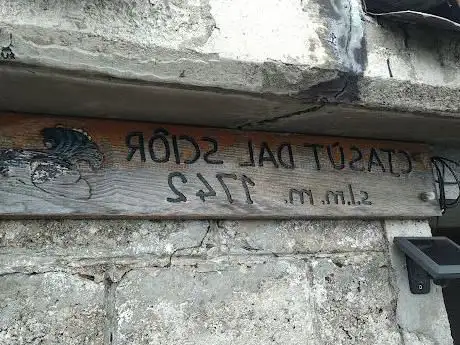 CJASÛT DAL SCIÔR
s.l.m. m. 1742